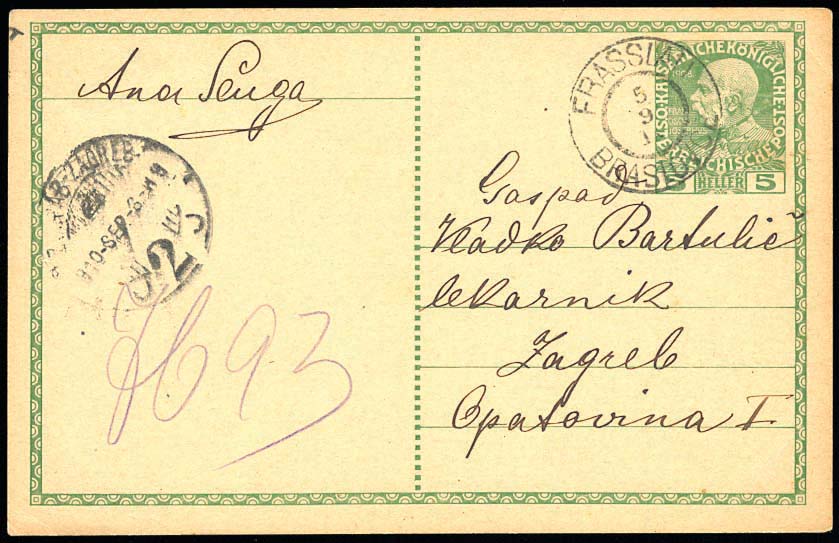 Ana Šenga
FRASSLAU
5
9
1
BRASLOVČE
KAISERLICHEKÖNIGLICHE ÖSTERREICHISCHE POST
1908
HELLER 5
ZAGREB
910-SEP
2
Gospod
Vladko Bartulić
lekarnik
Zagreb
Opatovina I
7693